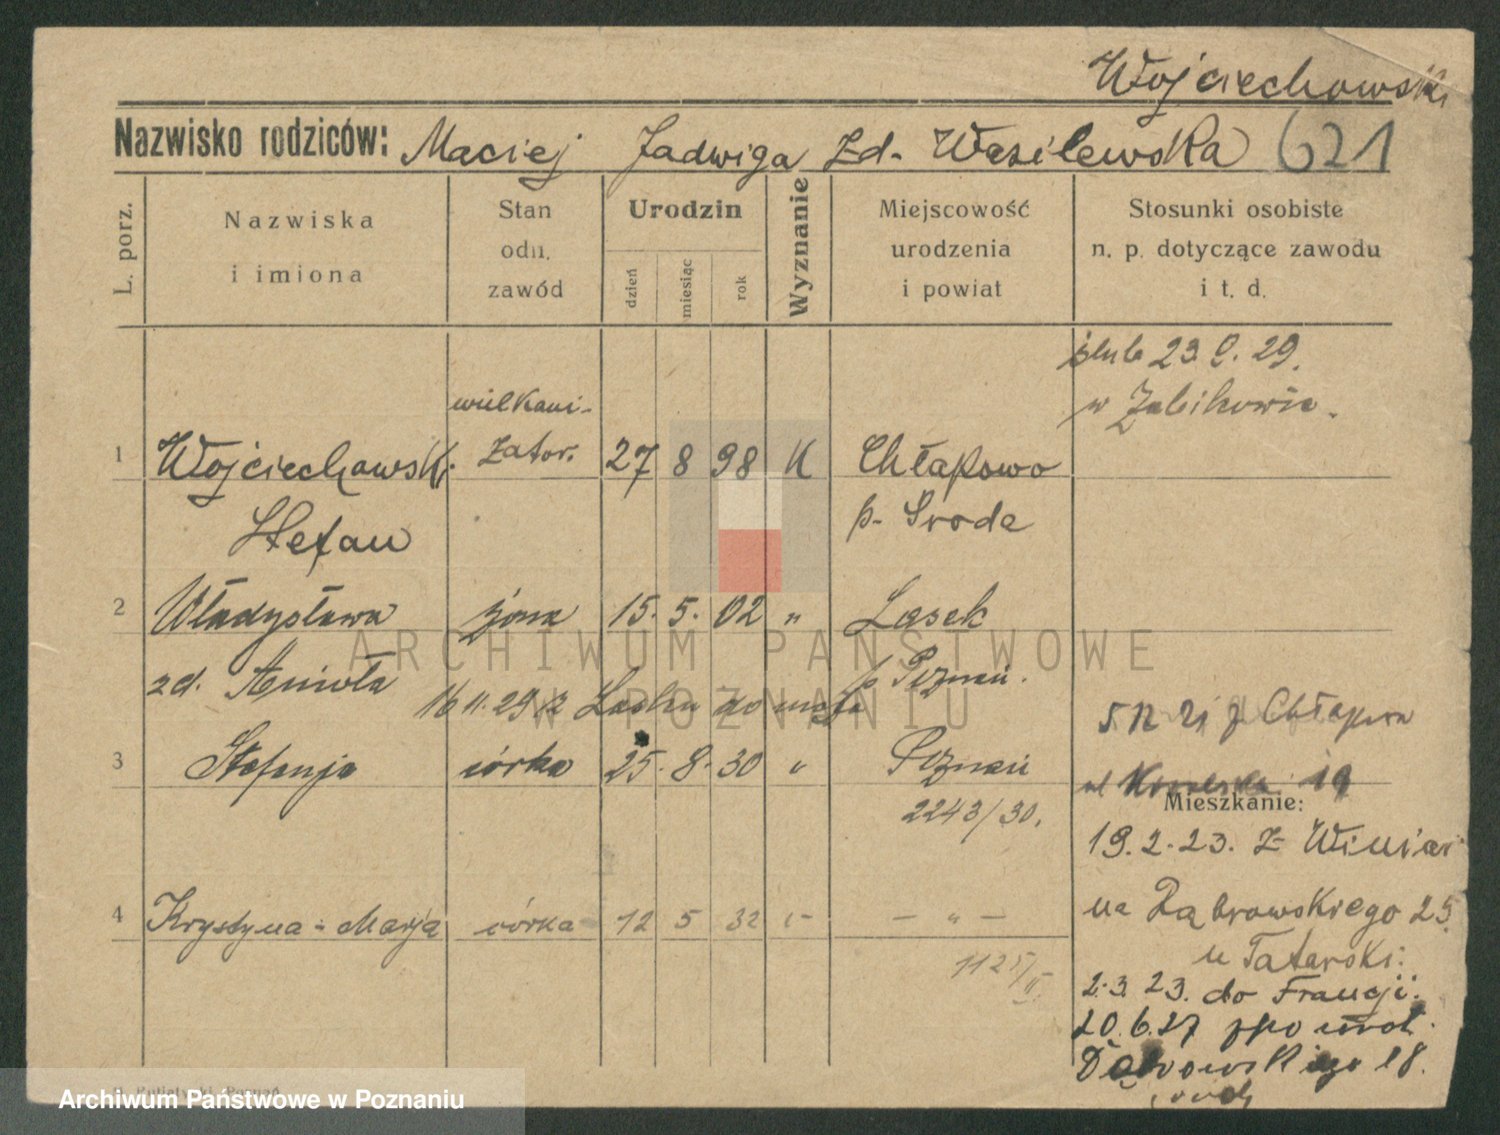 Wojciechowski
Nazwisko rodziców: Maciej Jadwiga zd. Wasilewska 621
L. porz.
Nazwiska i imiona
Stan odn. zawód
Urodzin
dzień
miesiąc
rok
Wyznanie
Miejscowość urodzenia i powiat
Stosunki osobiste n. p. dotyczące zawodu i t. d.
ślub 23. 9. 29.
w Żabikowie.
wielkani-
1 Wojciechowski zator. 27 8 98 K Chłapowo
Stefan p. Środa
2 Władysława żona 15. 5. 02 " Lasek
zd. Anioła p. Poznań.
16 11. 29 z Lasku do męża
5 12 21 z Chłapowa
3 Stefanja córka 25. 8. 30 " Poznań
ul 19
Mieszkanie:
2243/30.
19. 2. 23. z Winiar
4 Krystyna-Marja córka 12 5 32 " - " -
na Dąbrowskiego 25.
u Tatarski:
1125/
2. 3. 23. do Francji.
20. 6. 27 wrót.
Dąbrowskiego 18.
ARCHIWUM PAŃSTWOWE
W POZNANIU
Poznań
Archiwum Państwowe w Poznaniu